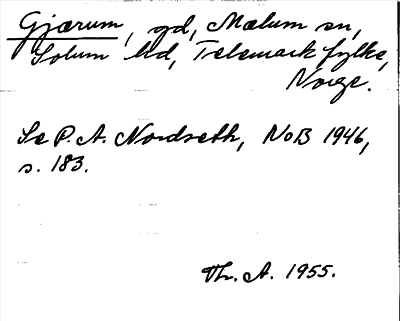 Gjærum, gd, Mælum sn,
Solum hd, Telemark fylke,
Norge.
Se P. A. Nordseth, NoB 1946,
s. 183.
Th. A. 1955.